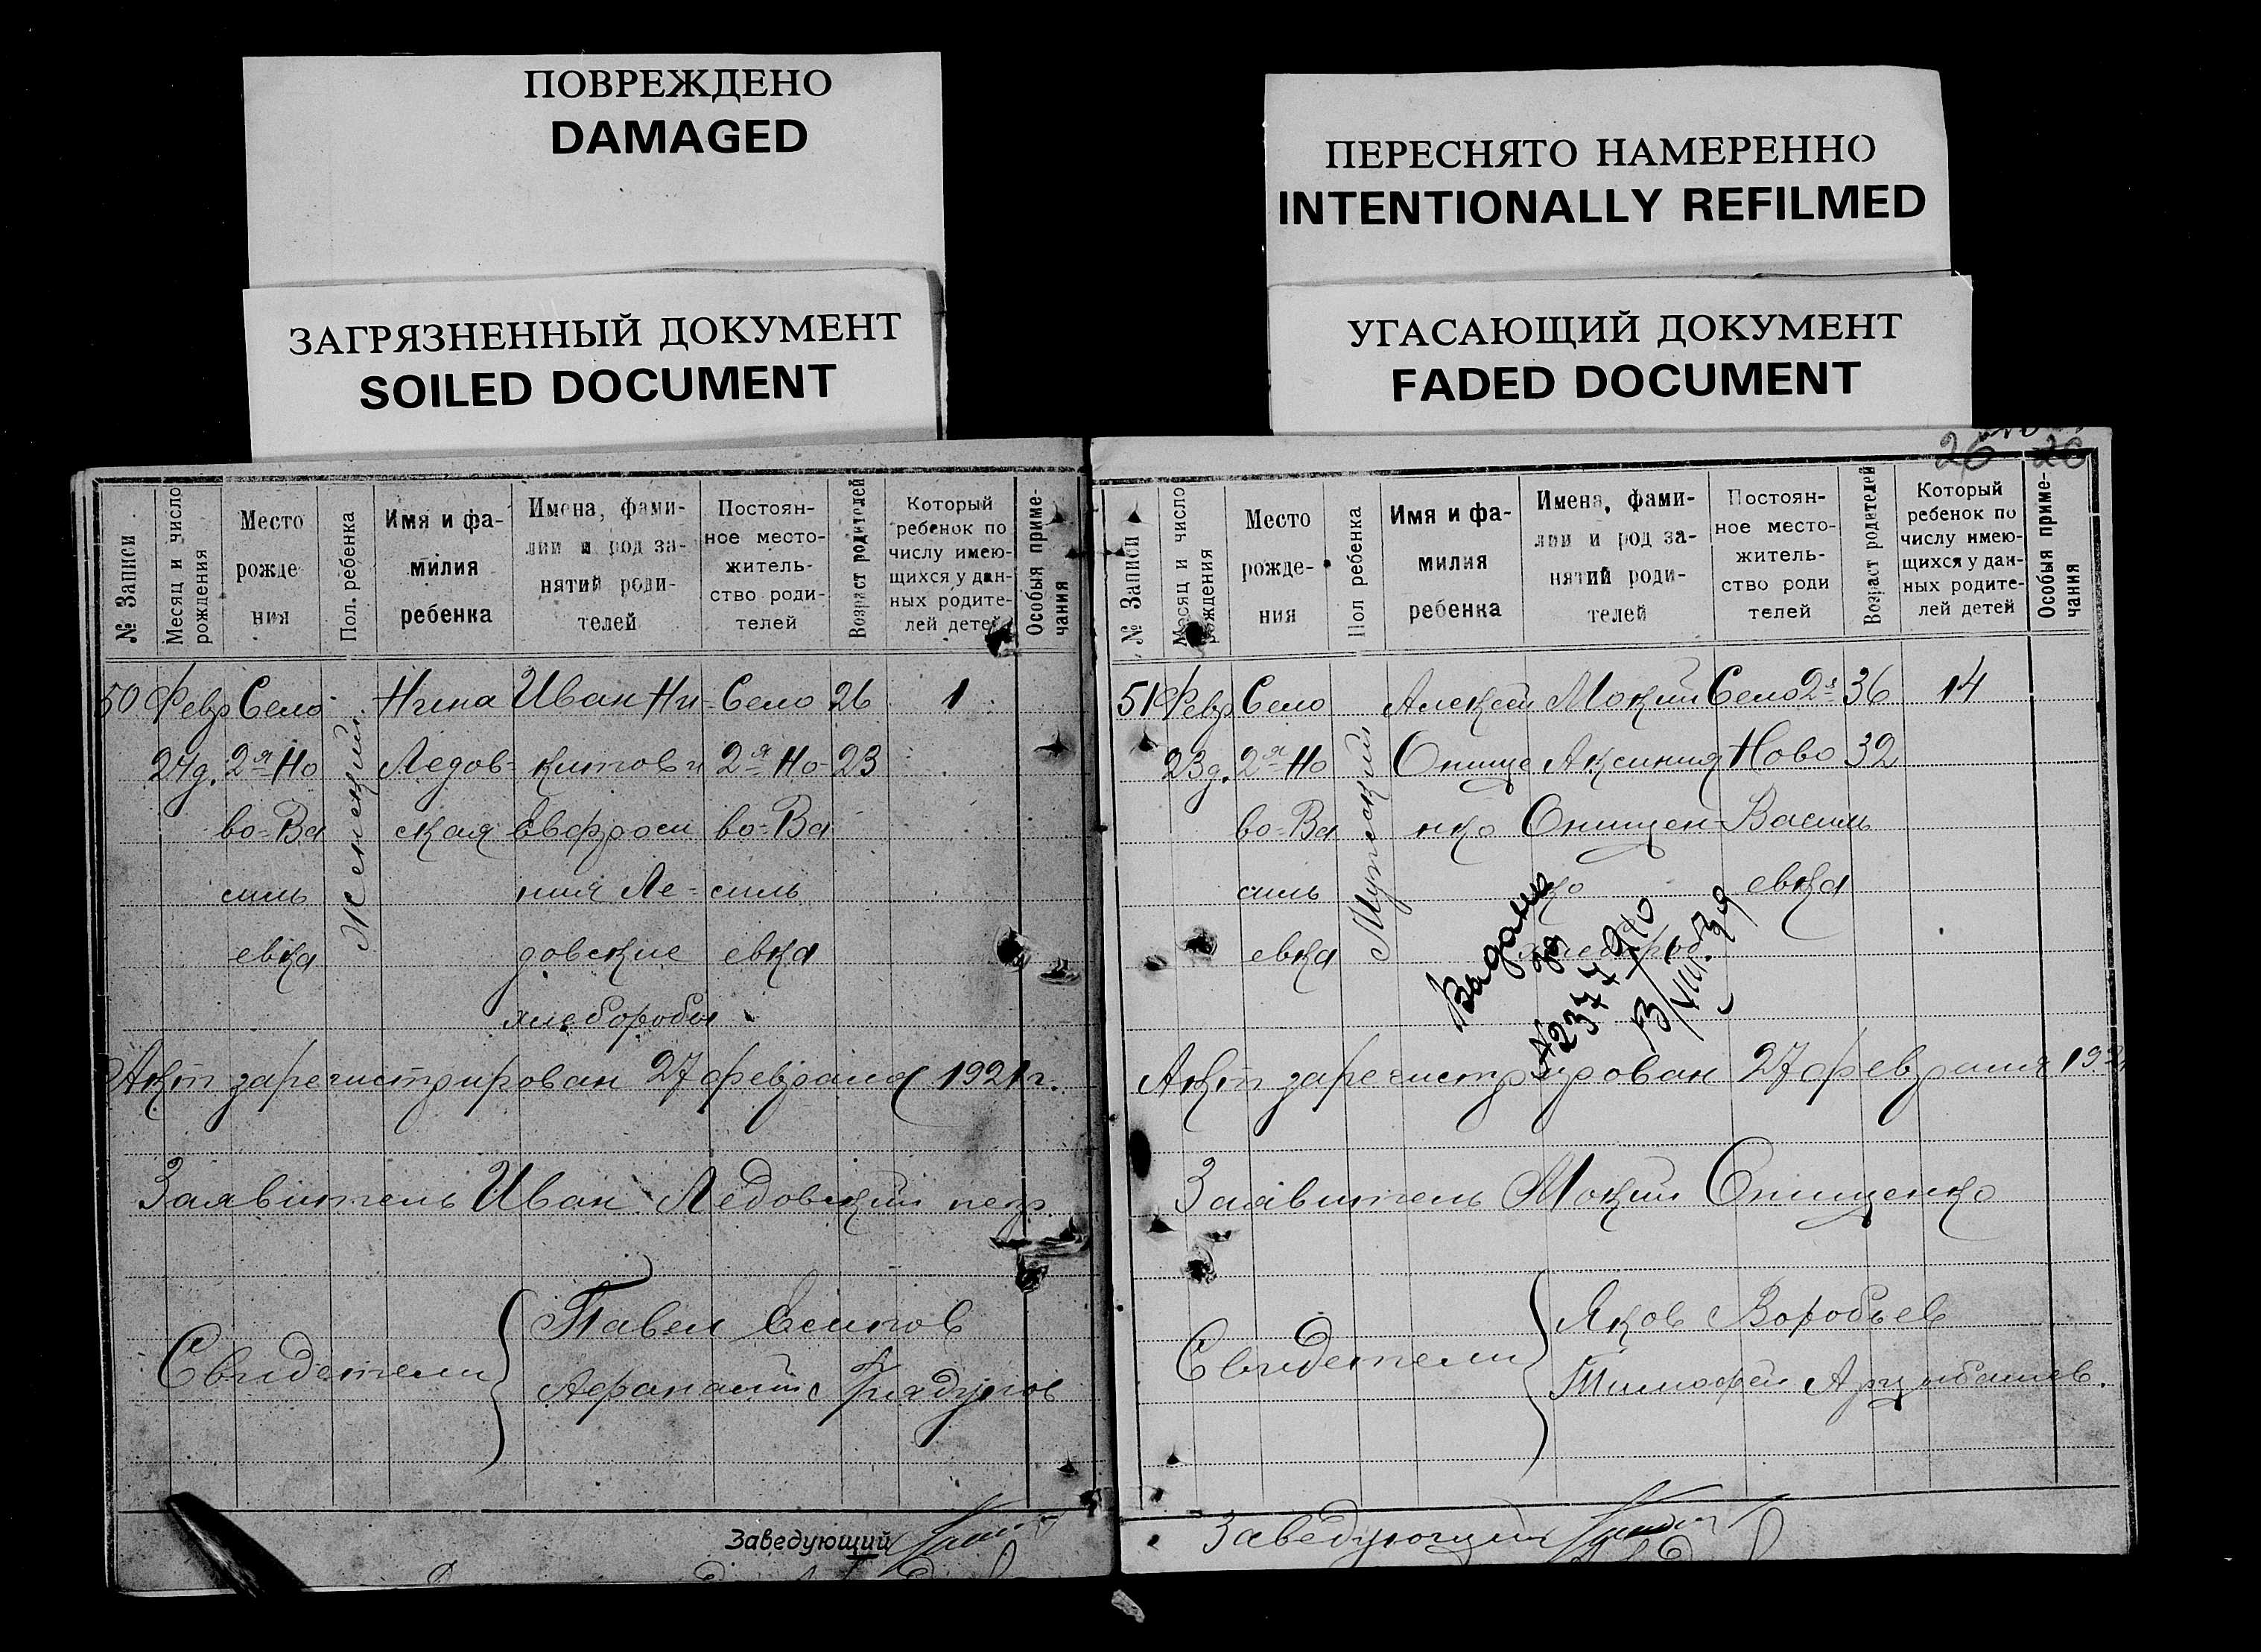 ПОВРЕЖДЕНО
DAMAGED
ЗАГРЯЗНЕННЫЙ ДОКУМЕНТ
SOILED DOCUMENT
ПЕРЕСНЯТО НАМЕРЕННО
INTENTIONALLY REFILMED
УГАСАЮЩИЙ ДОКУМЕНТ
FADED DOCUMENT
№ Записи
Месяц и число рождения
Место рожде ния
Пол. ребенка
Имя и фа- милия ребенка
Имена, фами- лии и род за- нятий роди- телей
Постоян- ное место- житель- ство роди- телей
Возраст родителей
Который ребенок по числу имею- щихся у дан- ных родите- лей детей
Особыя приме- чания
50 Февр Село Женский Нина Иван Ни- Село 26 1
24д. 2я Но Ледов- китов и 2я Но- 23
во-Ва ская Евфроси во-Ва
силь ния Ле- силь
евка довские евка
хлеборобы
Акт зарегистрирован 27 февраля 1921 г.
Заявитель Иван Ледовский
Свидетели
Павел Есипов
Афанасий
Заведующий
26 26
№ Записи
Месяц и число рождения
Место рожде- ния
Пол ребенка
Имя и фа- милия ребенка
Имена, фами- лии и род за- нятий роди- телей
Постоян- ное место- житель- ство роди телей
Возраст родителей
Который ребенок по числу имею- щихся у дан- ных родите- лей детей
Особыя приме- чания
51 Февр Село Мужской Алексей Мокий Село 2я 36 14
23д. 2я Но Онище Аксиния Ново 32
во-Ва нко Онищен- Василь
силь ко евка
евка
Акт зарегистрирован 27 февраля 192
Заявитель Мокий Онищенко
Свидетели
Яков Воробьев
Тимофей Арцыбашев.
Заведующий